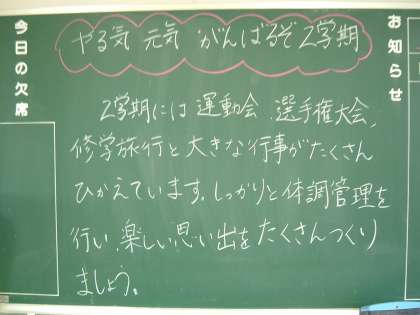 やる気 元気 がんばるぞ2学期
お知らせ
今日の欠席
2学期には 運動会、選手権大会、
修学旅行と大きな行事がたくさん
ひかえています。しっかりと体調管理を
行い 楽しい思い出をたくさんつくり
ましょう。